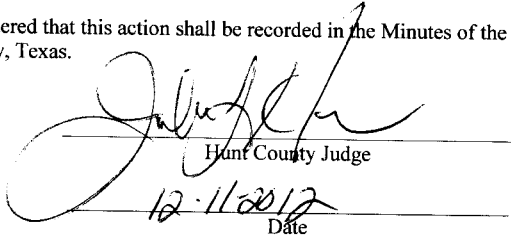 ered that this action shall be recorded in the Minutes of the
, Texas.
Hunt County Judge
12-11-2012
Date